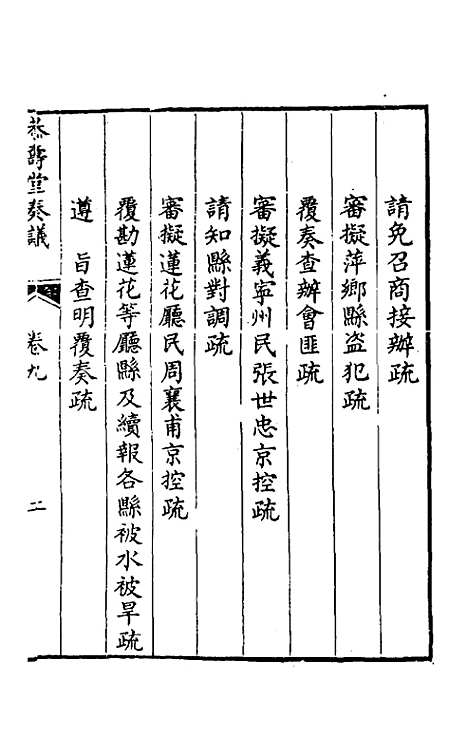 請免召商接辦疏
審擬萍鄉縣盗犯疏
覆奏查辦會匪疏
審擬義寧州民張世忠京控疏
請知縣對調疏
審擬蓮花廳民周襄甫京控疏
覆勘蓮花等廳縣及續報各縣被水被旱疏
遵 旨查明覆奏疏
恭壽堂奏議 卷九 二